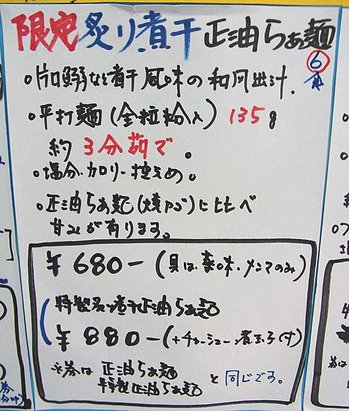 限定炙り煮干正油らぁ麺
⑥食
。加鰯など煮干風味の和風出汁.
。平打麺(全粒粉入) 135g
約3分茹で。
。塩分・カロリー控えめ。
。正油らぁ麺(焼アゴ)に比べ
甘みが有ります。
¥680-(具は薬味・メンマのみ)
特製炙り煮干正油らぁ麺
¥880-(+チャーシュー・煮玉子付)
※券は 正油らぁ麺
特製正油らぁ麺 と同じです。